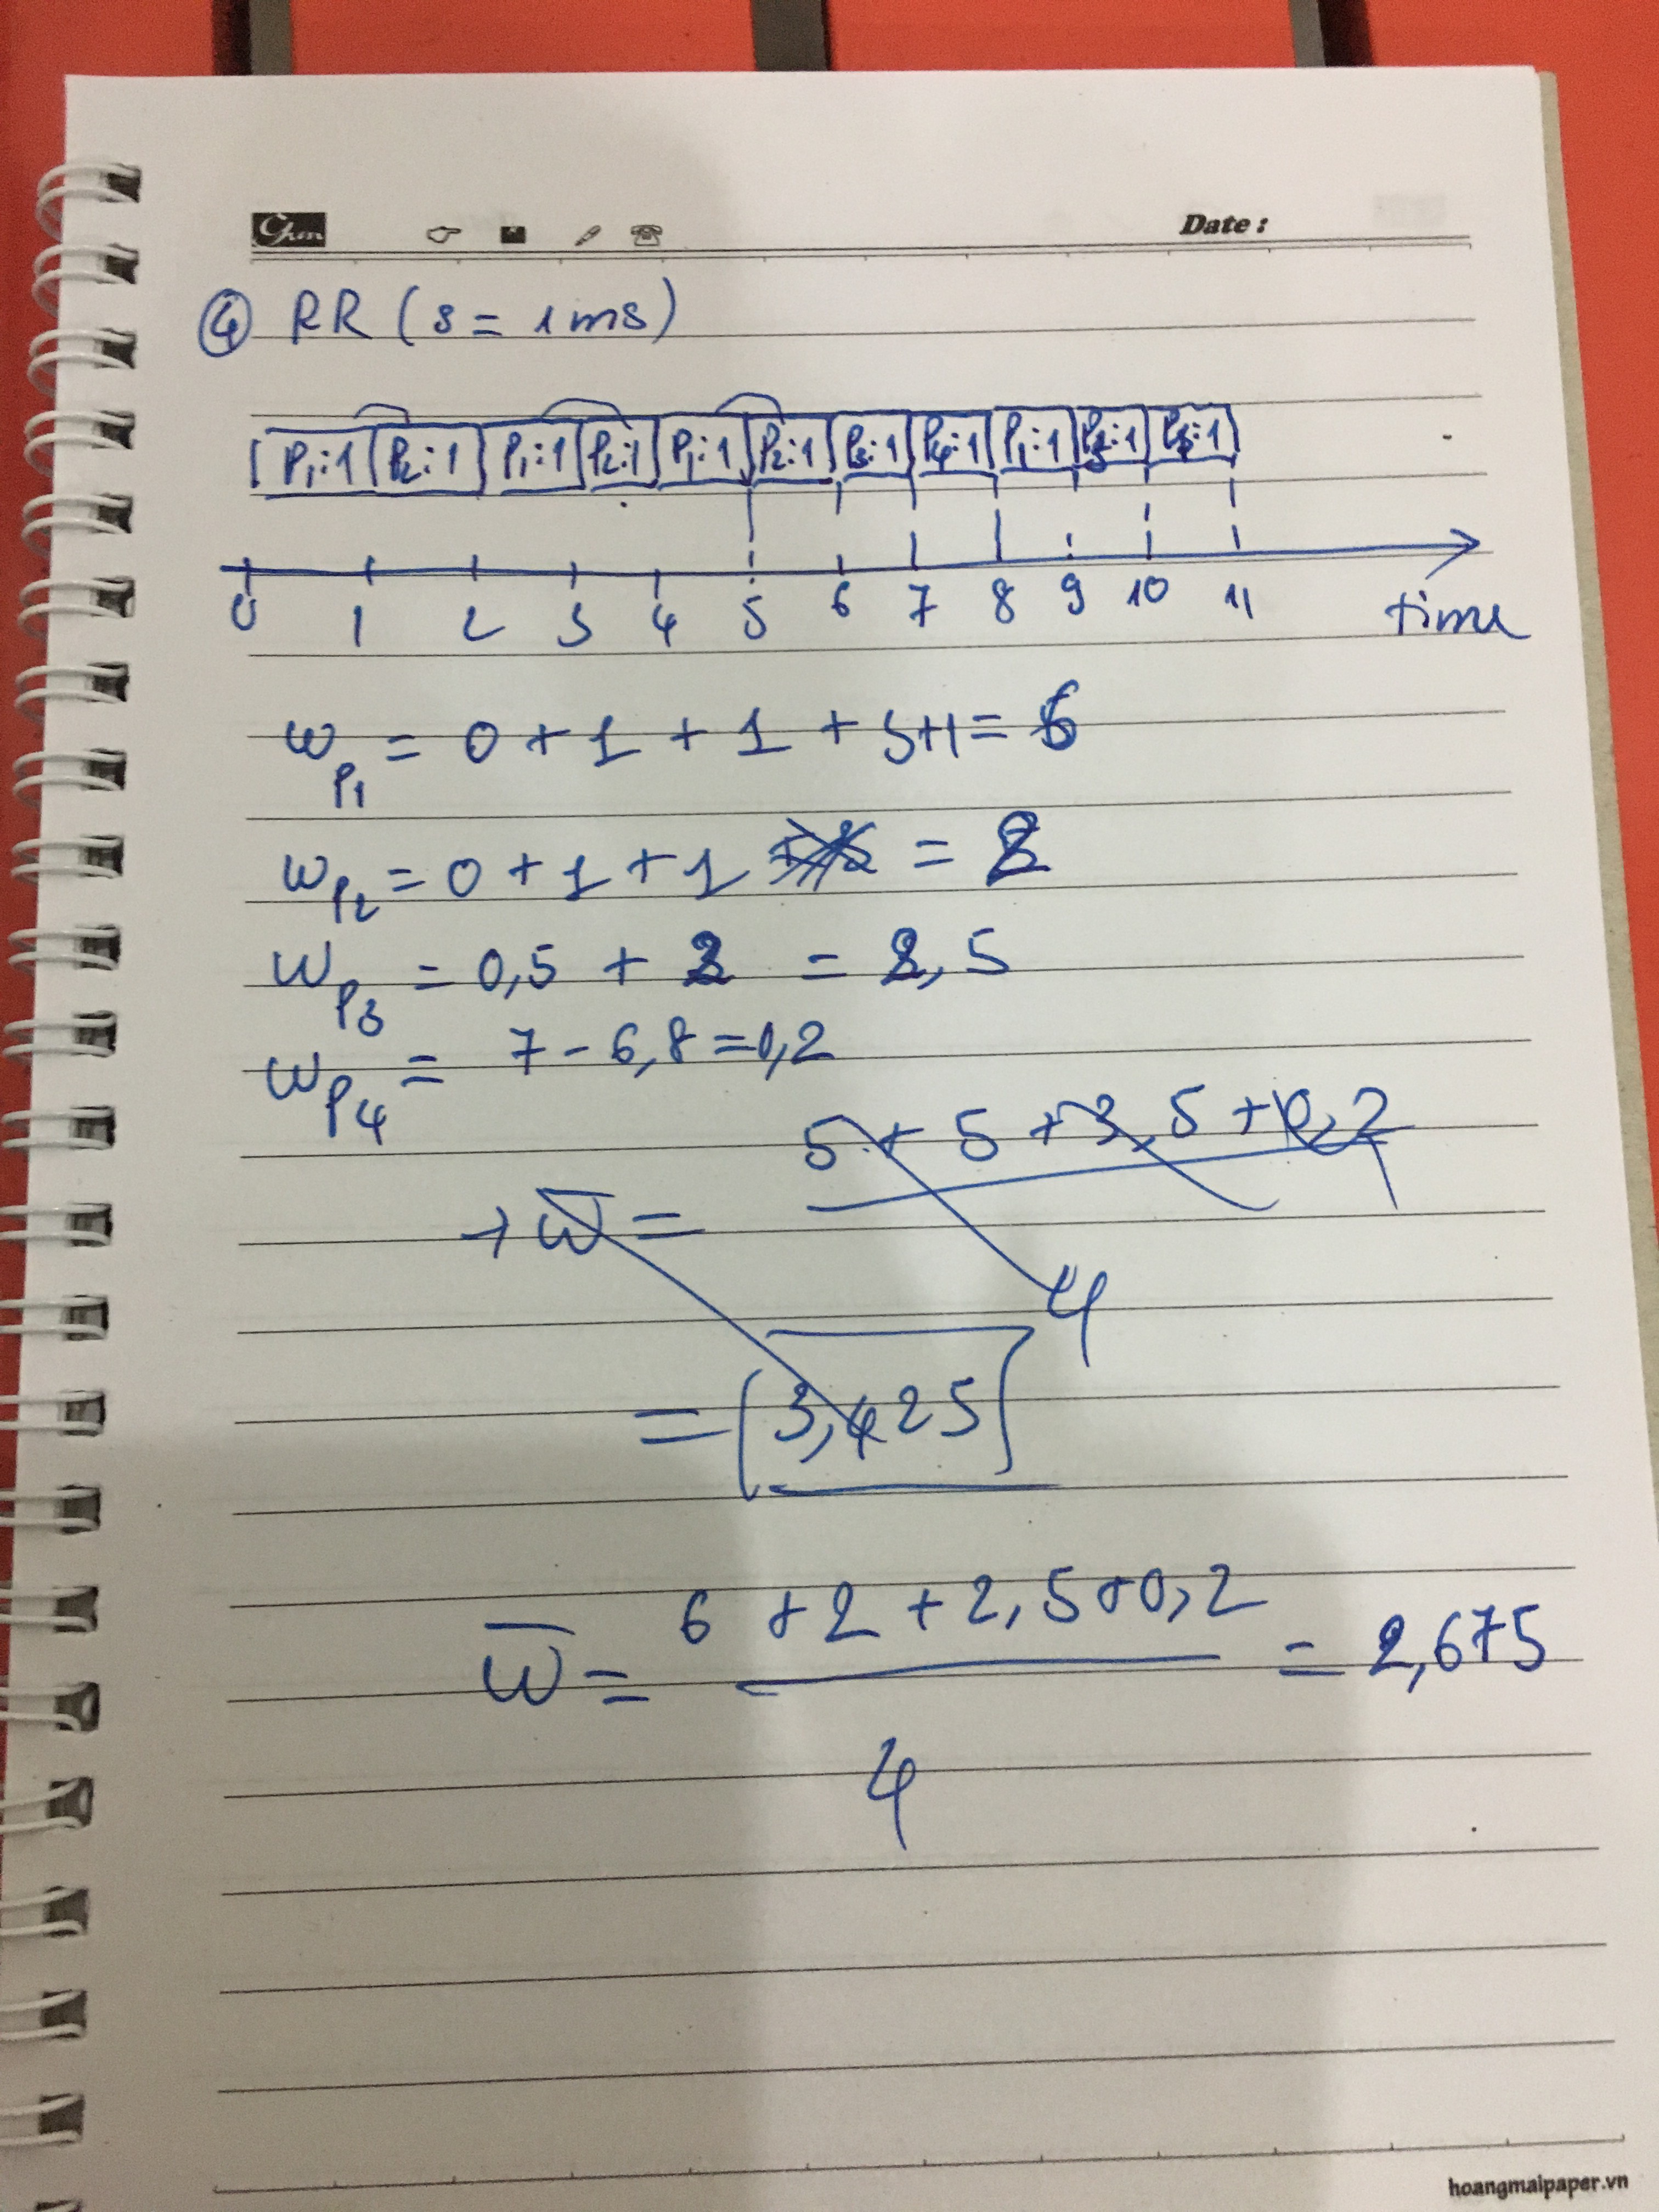 Date :
④ RR (s = 1ms)
P₁:1 P₂:1 P₁:1 P₂:1 P₁:1 P₂:1 P₃:1 P₄:1 P₁:1 P₃:1 :1
0 1 2 3 4 5 6 7 8 9 10 11 time
w_P₁ = 0 + 1 + 1 + 3+1 = 6
w_P₂ = 0 + 1 + 1 = 2
w_P₃ = 0,5 + 2 = 2,5
w_P₄ = 7 - 6,8 = 0,2
5 + 5 + 3,5 + 0,2
→ w̅ =
4
= 3,425
6 + 2 + 2,5 + 0,2
w̅ = = 2,675
4
hoangmaipaper.vn